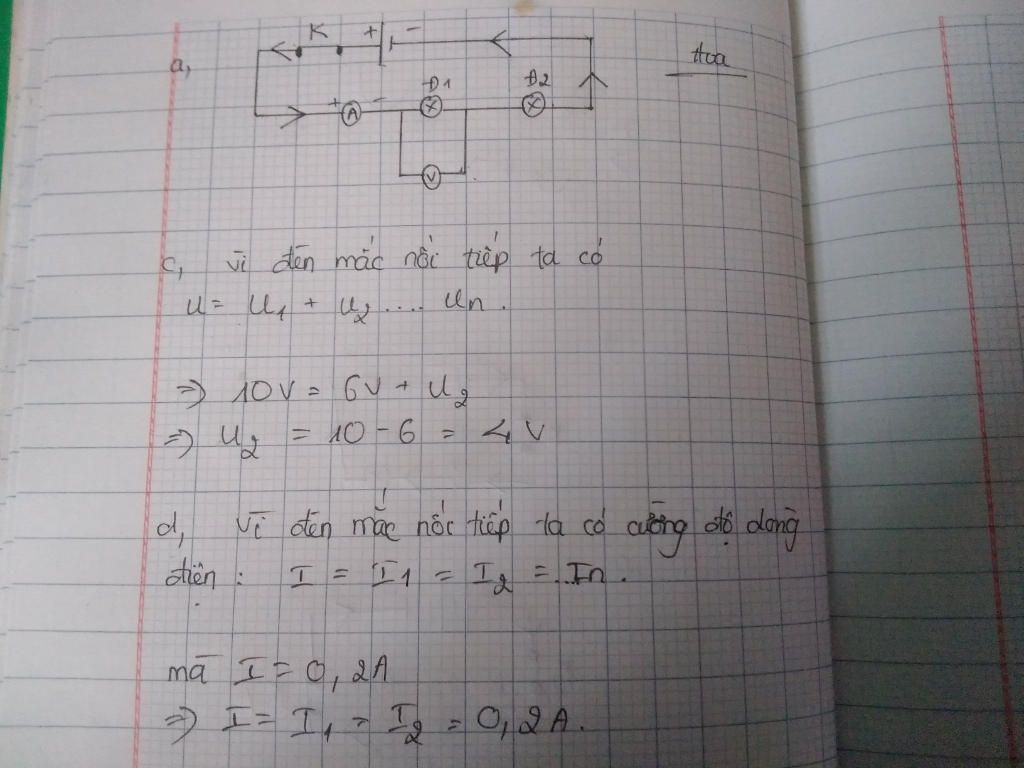 a,
K
+ -
Hoa
Đ1
Đ2
+ A -
V
c, vì đèn mắc nối tiếp ta có
U = U1 + U2 .... Un.
=> 10V = 6V + U2
=> U2 = 10 - 6 = 4 V
d, Vì đèn mắc nối tiếp ta có cường độ dòng
điện : I = I1 = I2 = ..In.
mà I = 0,2A
=> I = I1 = I2 = 0,2A.